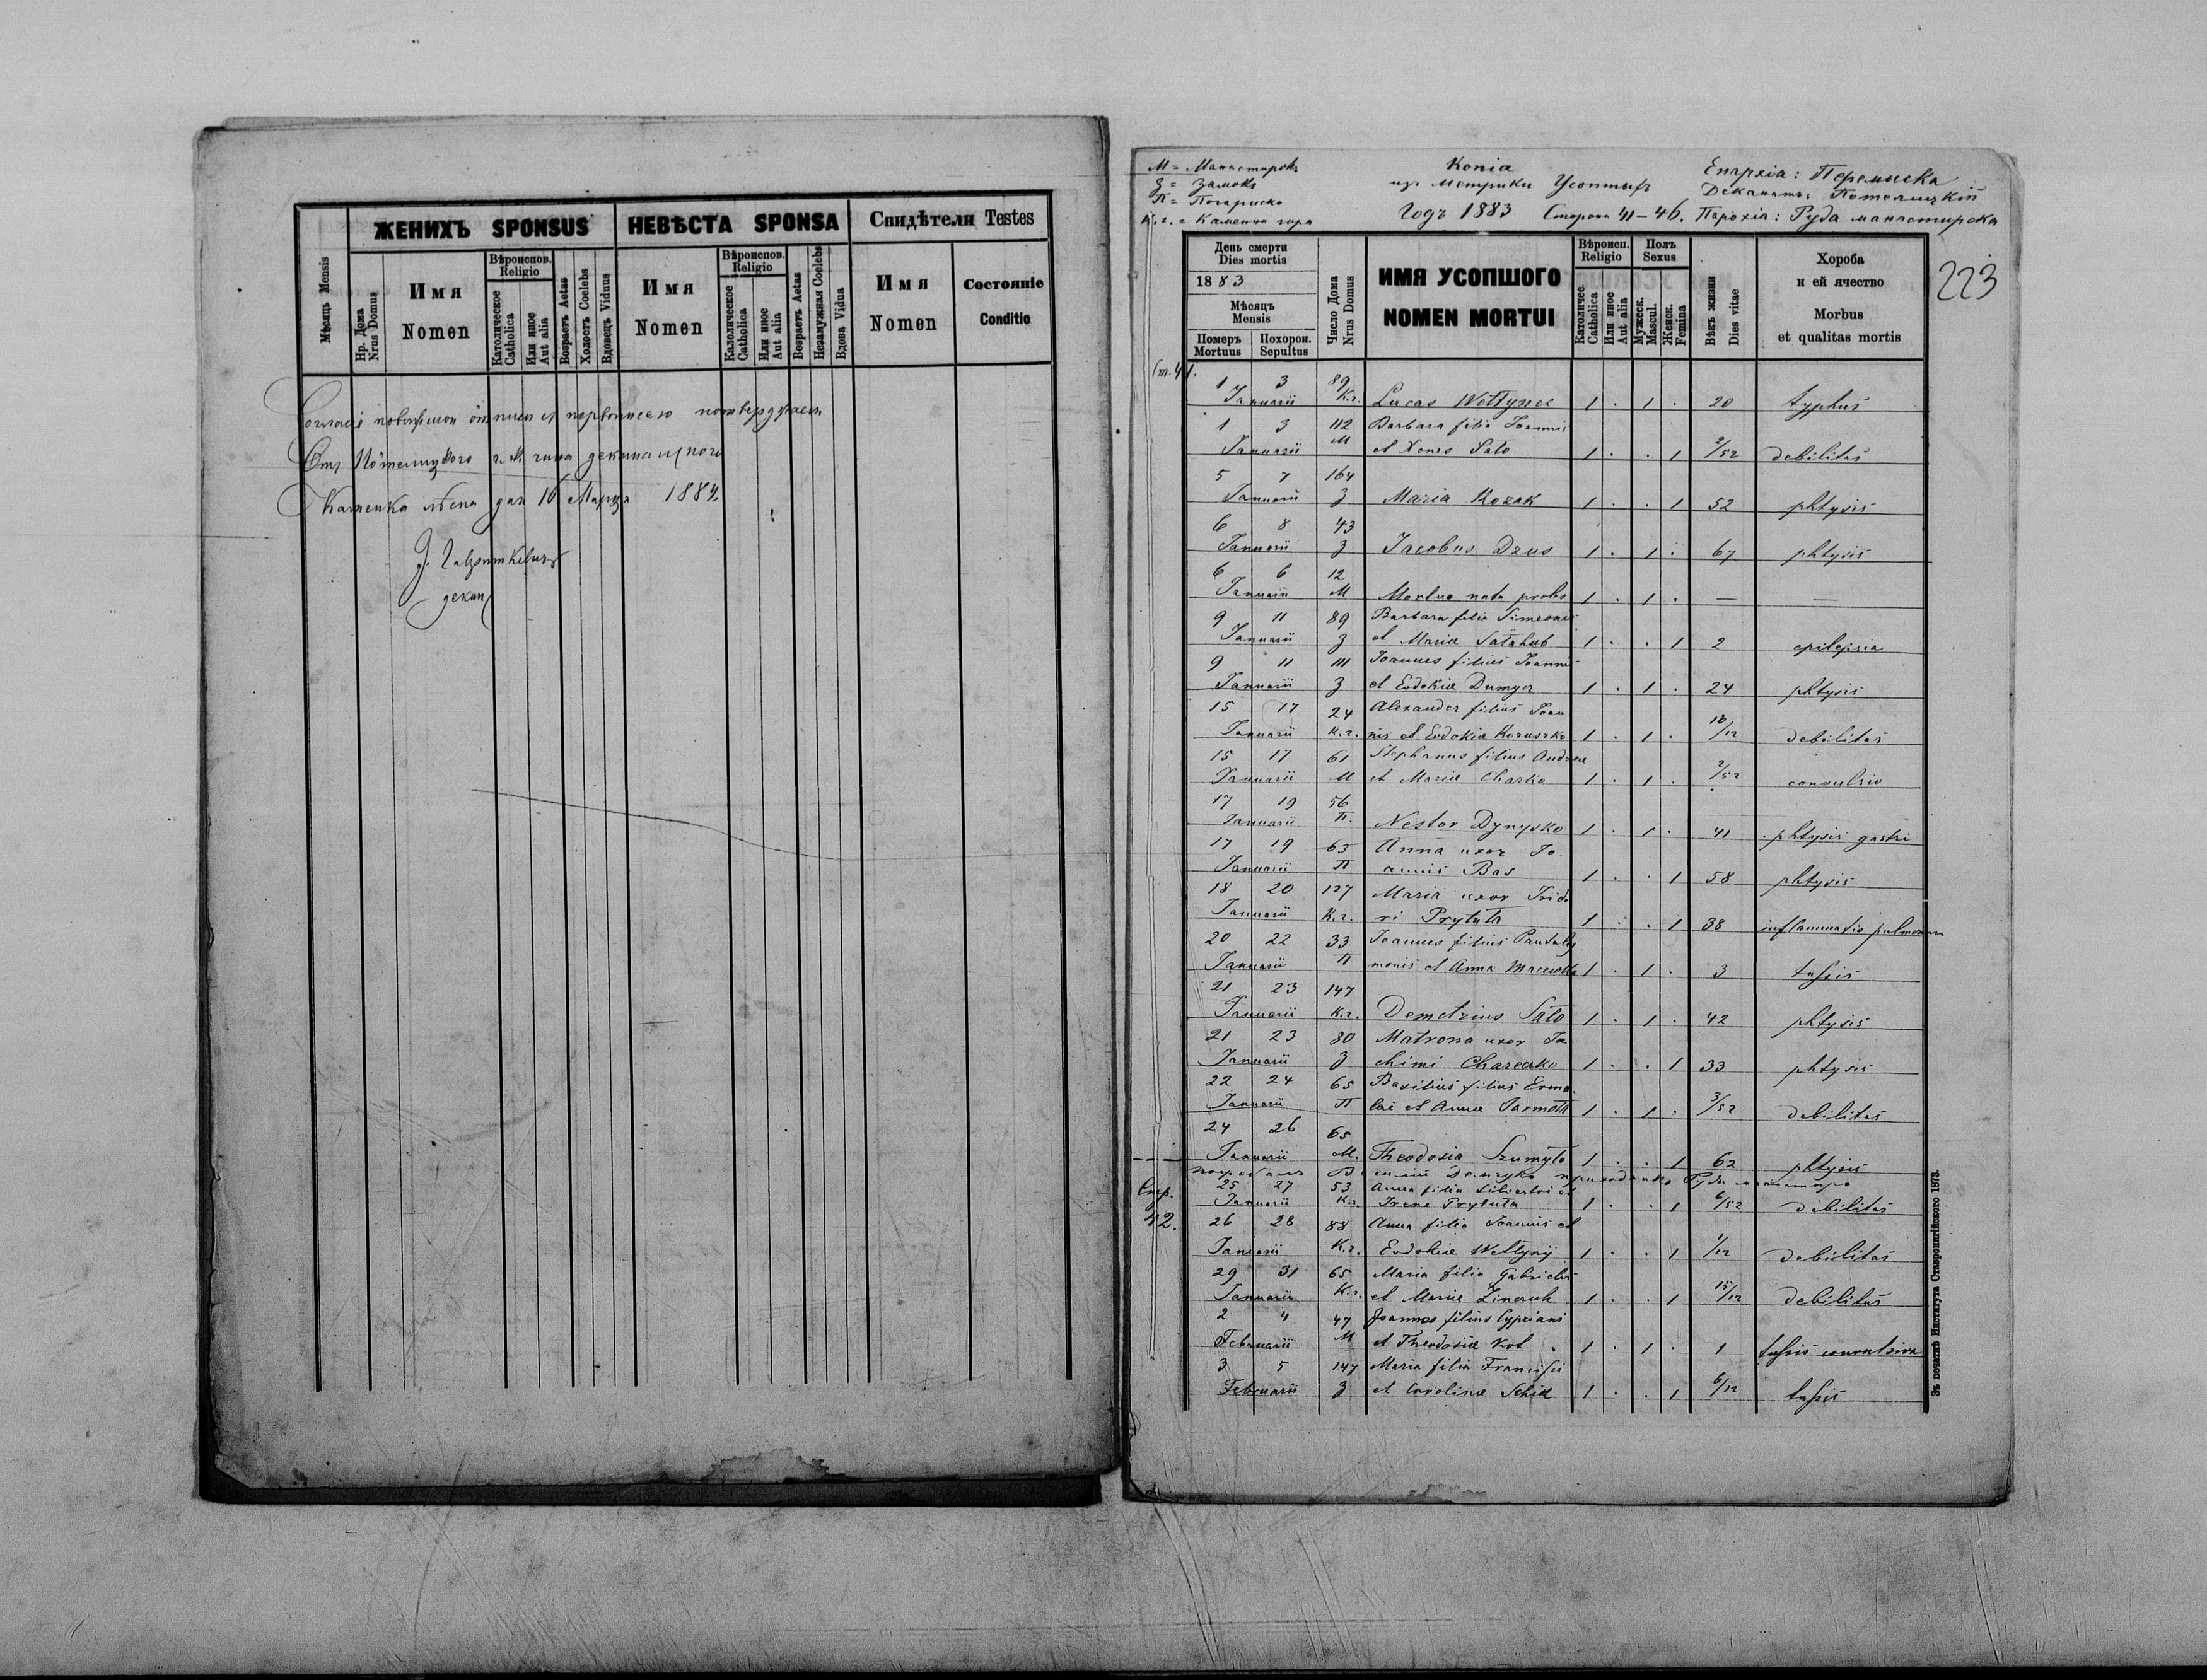 ЖЕНИХЪ SPONSUS
НЕВѢСТА SPONSA
Свидѣтели Testes
Мѣсяць Mensis
Нр. Дома Nrus Domus
Имя Nomen
Вѣроиспов. Religio
Католическое Catholica
Или иное Aut alia
Возрастъ Aetas
Холостъ Coelebs
Вдовецъ Viduus
Имя Nomen
Вѣроиспов. Religio
Католическое Catholica
Или иное Aut alia
Возрастъ Aetas
Незамужная Coelebs
Вдова Vidua
Имя Nomen
Состояніе Conditio
Каменка дня 16 Марця 1884
декан
М = Манастирокъ
З = Замокъ
П = Погариско
К.г. = Каменна гора
Копіа
изъ Метрики Усопшихъ
Годъ 1883 Сторона 41-46.
Епархіа: Перемиска
Деканатъ: Потелицкій
Парохіа: Руда манастирска
223
День смерти Dies mortis
1883
Мѣсяцъ Mensis
Померъ Mortuus
Похорон. Sepultus
Число Дома Nrus Domus
ИМЯ УСОПШОГО
NOMEN MORTUI
Вѣроисп. Religio
Католичес. Catholica
Или иное Aut alia
Полъ Sexus
Мужеск. Mascul.
Женск. Femina
Вѣкъ жизни Dies vitae
Хороба и ей ячество
Morbus et qualitas mortis
Ст. 41.
1 3 89
Januarii К.г. Lucas 1 . 1 . 20 typhus
1 3 112 Barbara filia Joannis
Januarii М et Xenes Sato 1 . . 1 2/52 debilitas
5 7 164
Januarii З Maria Kozak 1 . . 1 52 phtysis
6 8 43
Januarii З Jacobus Dzus 1 . 1 . 67 phtysis
6 6 12
Januarii М Mortuo nata proles 1 . 1 . — —
9 11 89 Barbara filia Simeonis
Januarii З et Mariæ 1 . . 1 2 epilepsia
9 11 111 Joannes filius Joannis
Januarii З et Eudokiæ Dumycz 1 . 1 . 24 phtysis
15 17 24 Alexander filius Joan
Januarii К.г. nis et Eudokiæ Koruszko 1 . 1 . 10/12 debilitas
15 17 61 Stephanus filius Andreæ
Januarii М et Mariæ Charko 1 . 1 . 2/52 convulsio
17 19 56
Januarii П. Nestor Dynysko 1 . 1 . 41 phtysis gastri
17 19 63 Anna uxor Jo
Januarii П annis Bas 1 . . 1 58 phtysis
18 20 127 Maria uxor Isido
Januarii К.г. ri Prytuta 1 . . 1 38 inflammatio pulmonum
20 22 33 Joannes filius Pantaley
Januarii П monis et Anna 1 . 1 . 3 tussis
21 23 147
Januarii К.г. Demetrius Sato 1 . 1 . 42 phtysis
21 23 80 Matrona uxor Jo
Januarii З chimi Chareczko 1 . . 1 33 phtysis
22 24 65 Basilius filius Ermo
Januarii П lai et Annæ Jarmota 1 . 1 . 3/52 debilitas
24 26 65
Januarii М. Theodosia Szumyto 1 . . 1 62 phtysis
Стр. 42.
25 27 53 Anna filia Silvestri et
Januarii К.г. Irene Prytuta 1 . . 1 6/52 debilitas
26 28 88 Anna filia Joannis et
Januarii К.г. Eudokiæ 1 . . 1 1/12 debilitas
29 31 65 Maria filia Gabrielis
Januarii К.г. et Mariæ 1 . . 1 15/12 debilitas
2 4 47 Joannes filius Cypriani
Februarii М et Theodosiæ Kot 1 . 1 . 1 tussis convulsiva
3 5 147 Maria filia Francisci
Februarii З et Carolinæ Schik 1 . . 1 6/12 tussis
Зъ печатнѣ Института Ставропигійского 1873.